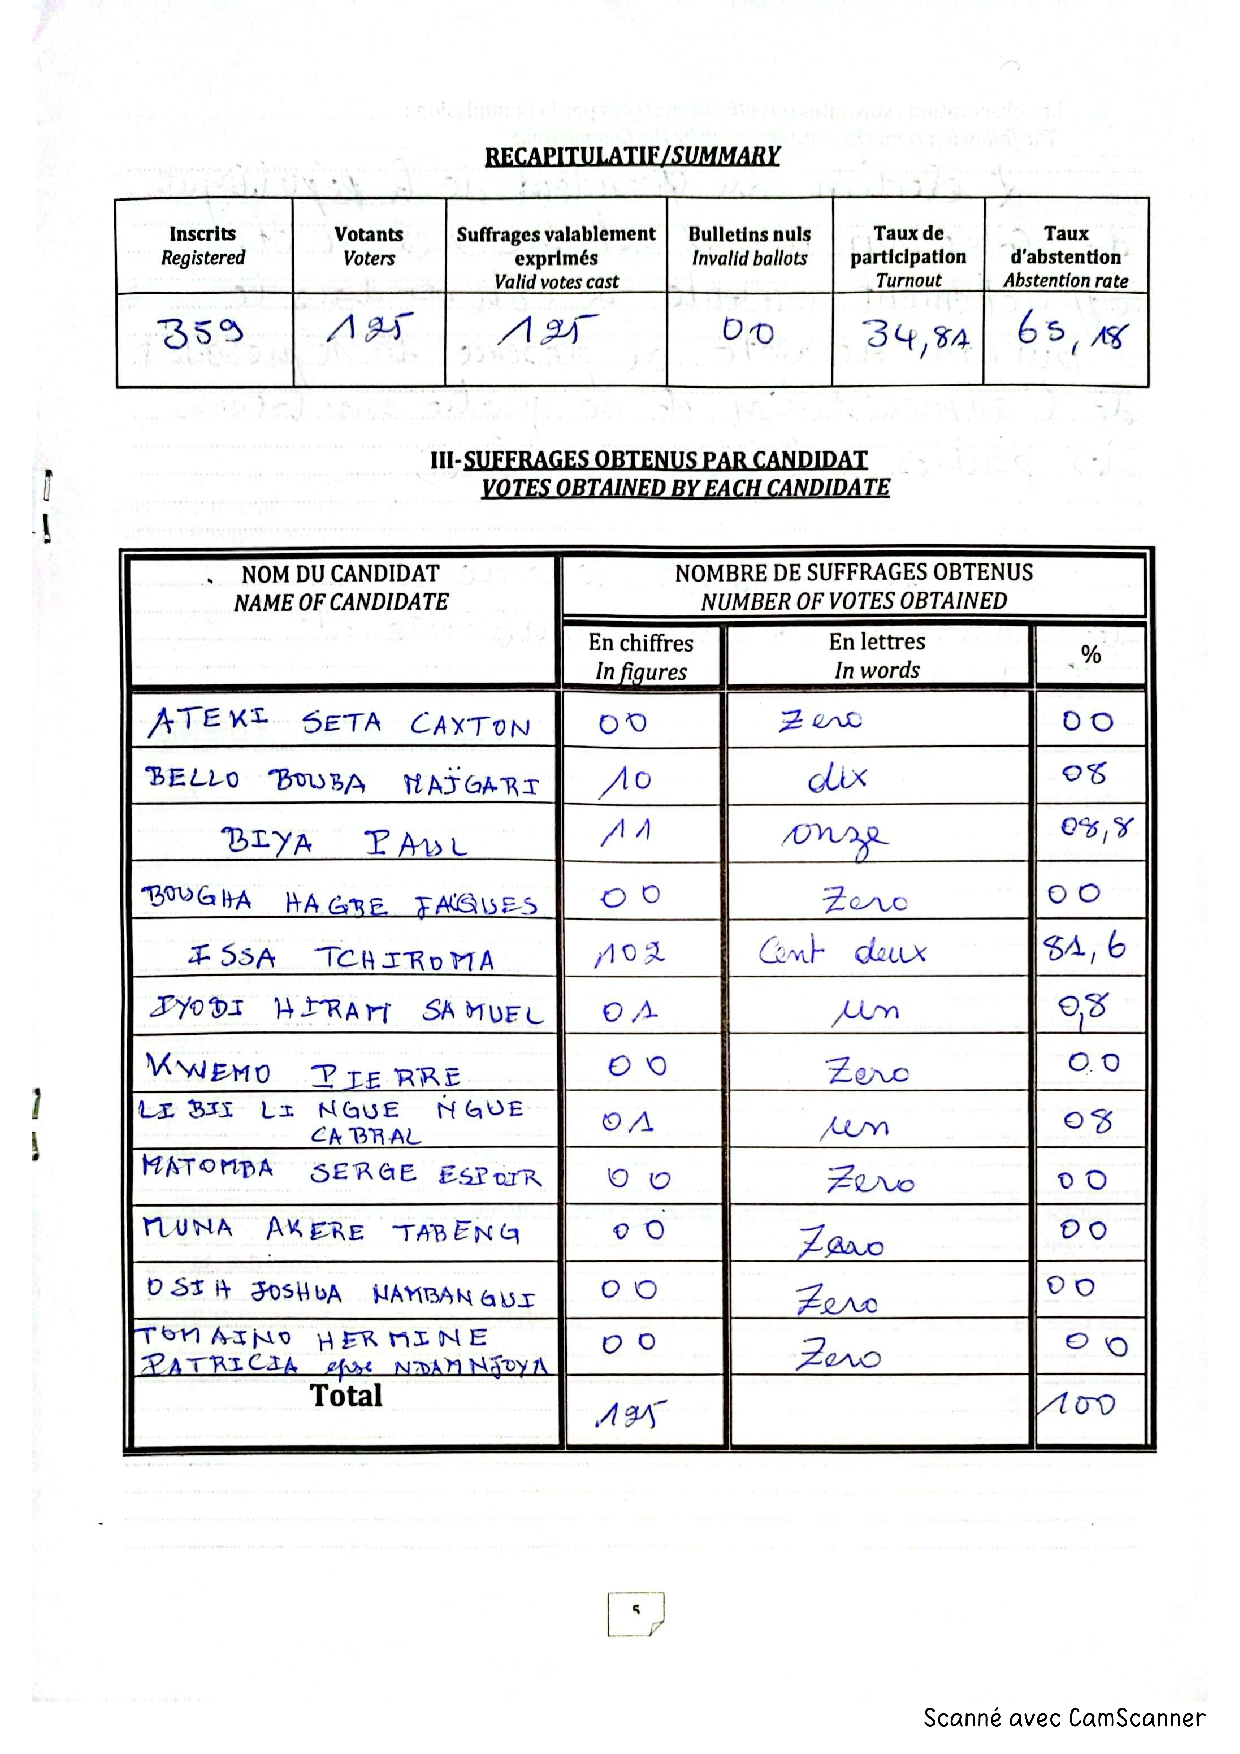 RECAPITULATIF/SUMMARY
Inscrits Votants Suffrages valablement Bulletins nuls Taux de Taux
Registered Voters exprimés Invalid ballots participation d'abstention
Valid votes cast Turnout Abstention rate
359 125 125 00 34,81 65,18
III-SUFFRAGES OBTENUS PAR CANDIDAT
VOTES OBTAINED BY EACH CANDIDATE
NOM DU CANDIDAT NOMBRE DE SUFFRAGES OBTENUS
NAME OF CANDIDATE NUMBER OF VOTES OBTAINED
En chiffres En lettres %
In figures In words
ATEKI SETA CAXTON 00 Zero 00
BELLO BOUBA MAÏGARI 10 dix 08
BIYA PAUL 11 onze 08,8
BOUGHA HAGBE JACQUES 00 Zero 00
ISSA TCHIROMA 102 Cent deux 81,6
IYODI HIRAM SAMUEL 01 un 0,8
KWEMO PIERRE 00 Zero 00
LI BII LI NGUE NGUE
CABRAL 01 un 08
MATOMBA SERGE ESPOIR 00 Zero 00
MUNA AKERE TABENG 00 Zero 00
OSIH JOSHUA NAMBANGUI 00 Zero 00
TOMAINO HERMINE
PATRICIA epse NDAMNJOYA 00 Zero 00
Total 125 100
5
Scanné avec CamScanner